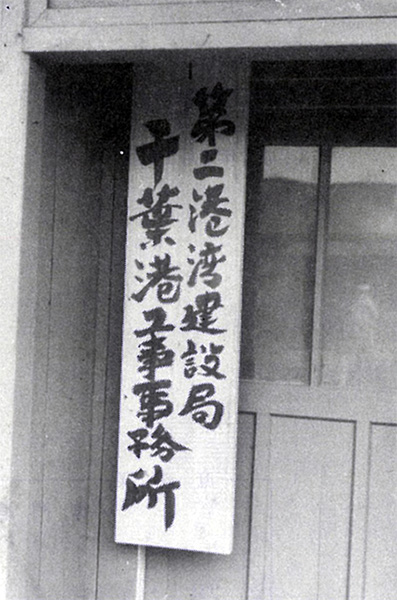 第二港湾建設局
千葉港工事事務所